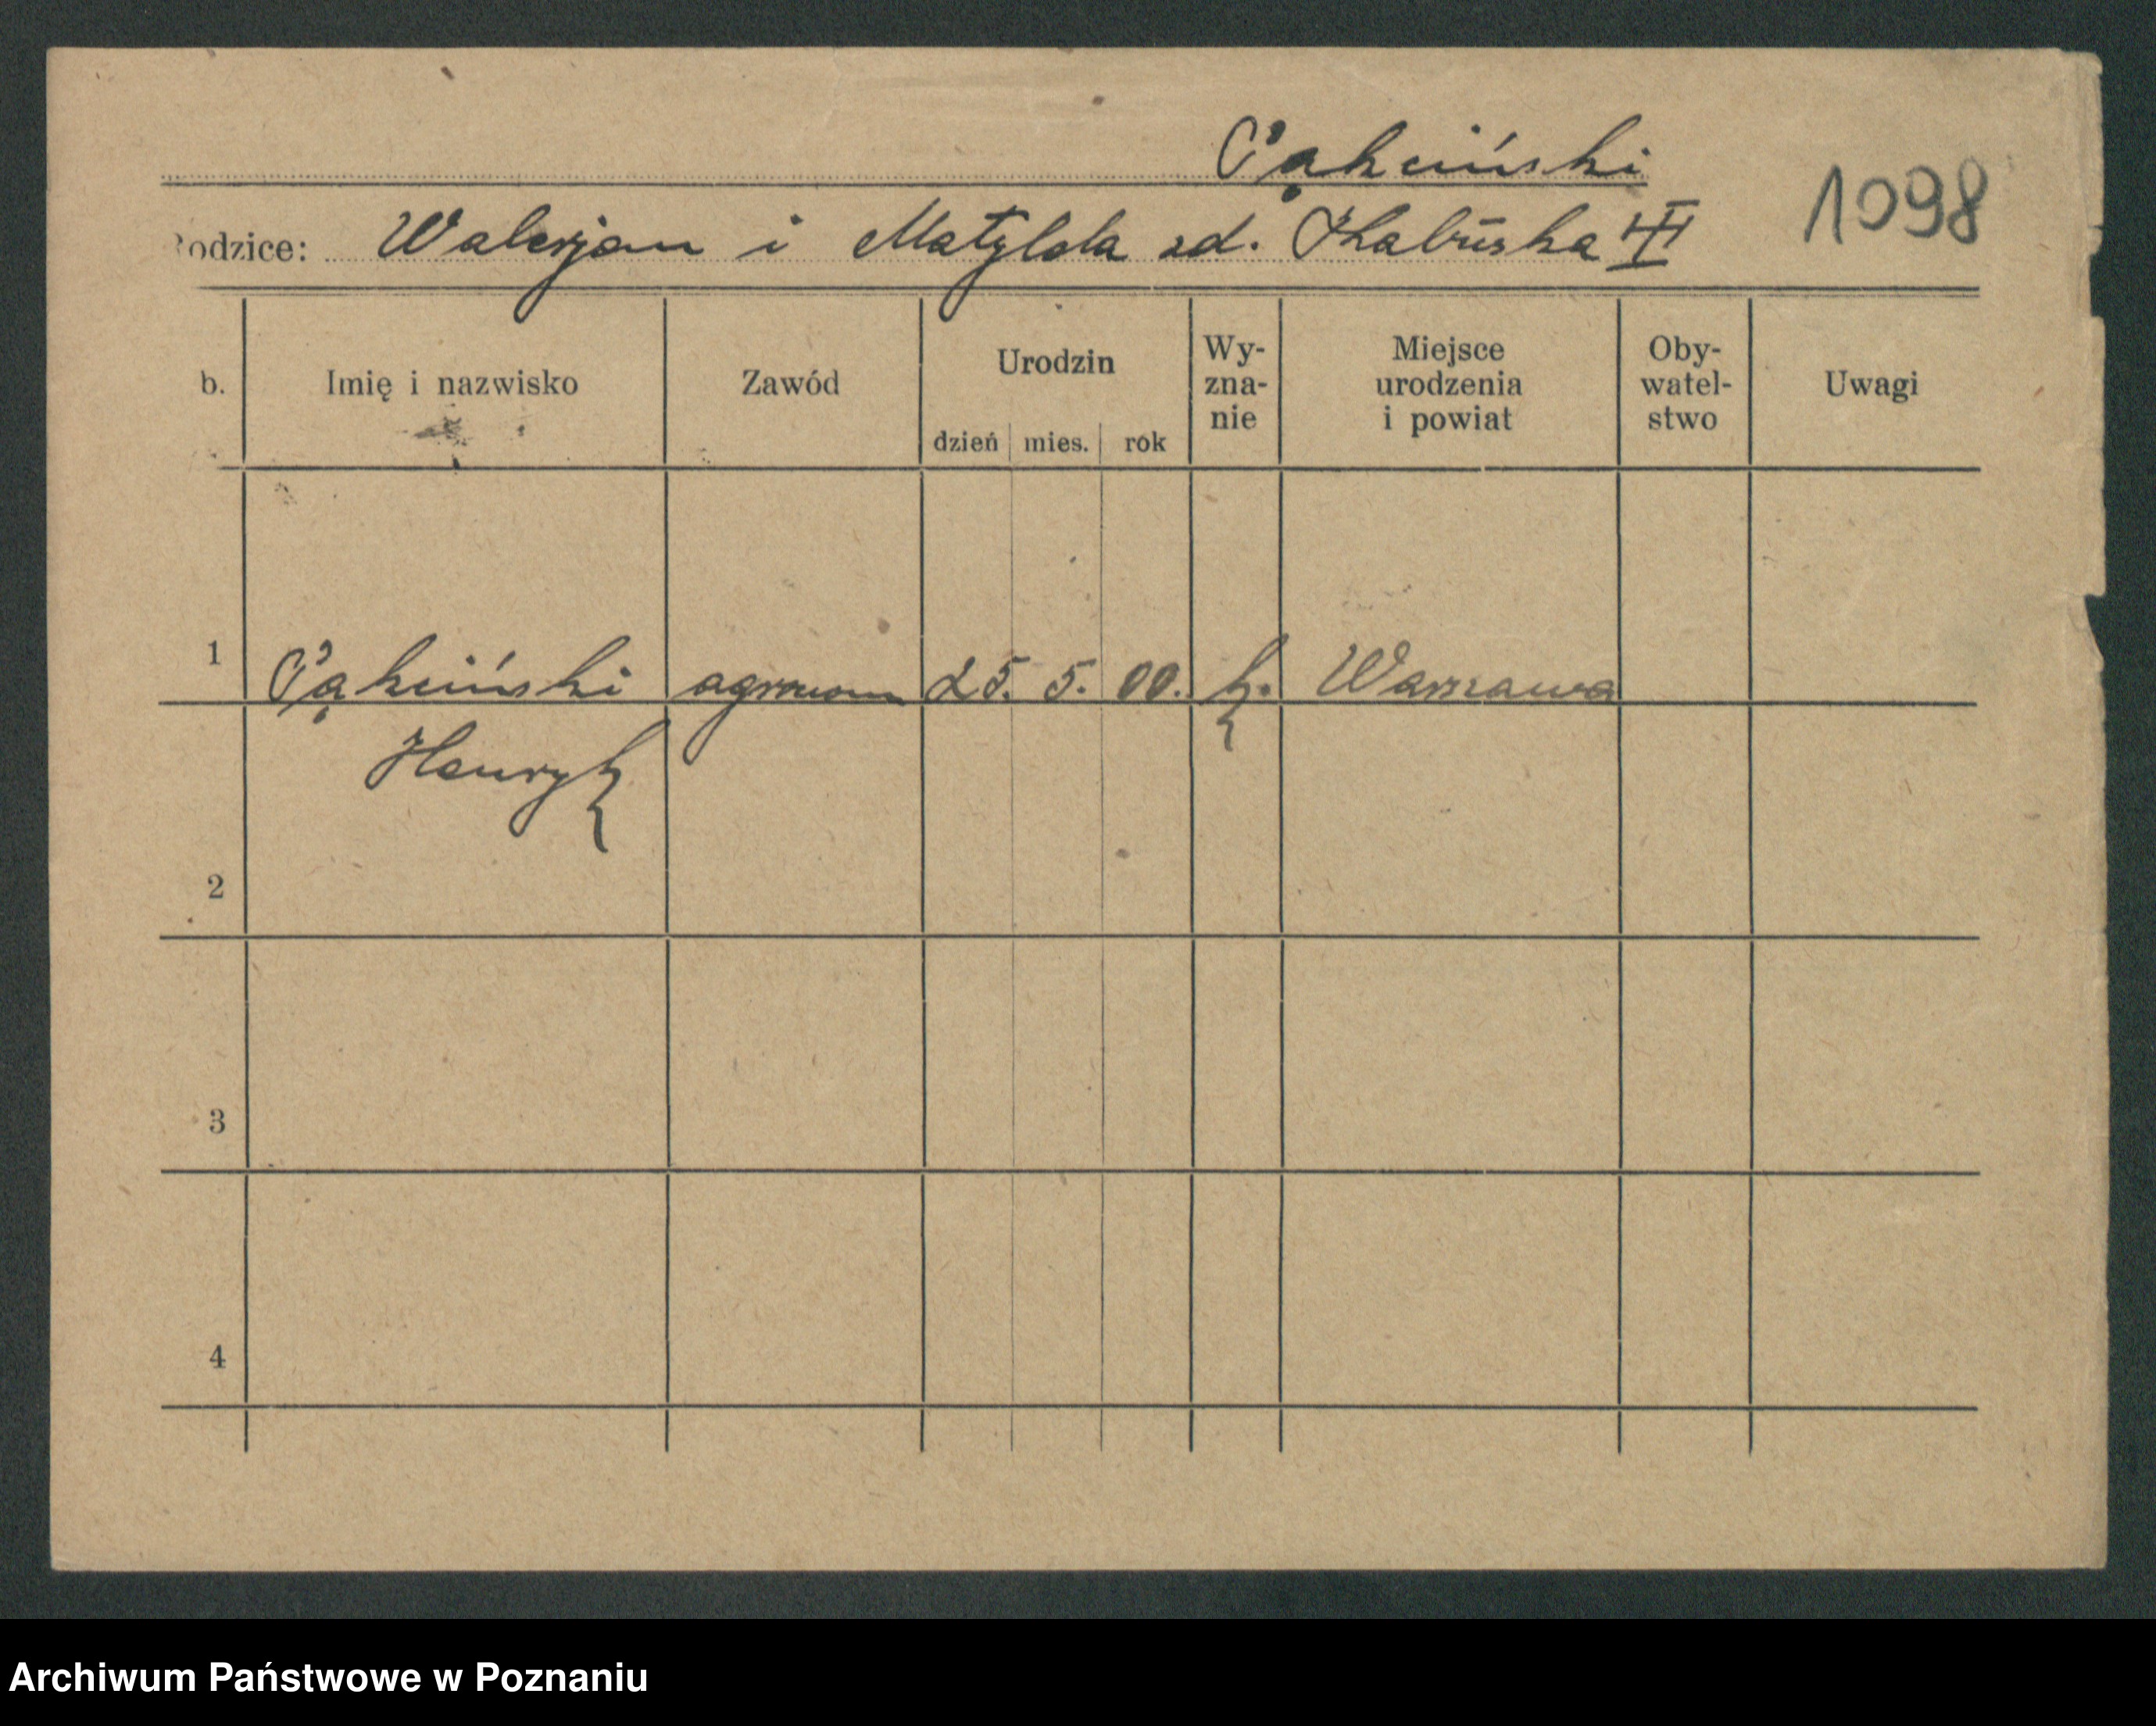 Pąkciński
Rodzice: Walerjan i Matylda zd.
1098
b. Imię i nazwisko Zawód Urodzin dzień mies. rok Wy-zna-nie Miejsce urodzenia i powiat Oby-watel-stwo Uwagi
1 Pąkciński agronom 25. 5. 00. k. Warszawa
Henryk
2
3
4
Archiwum Państwowe w Poznaniu